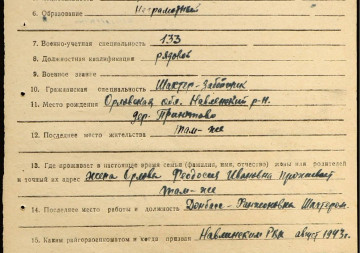 6. Образование неграмотный
7. Военно-учетная специальность 133
8. Должностная квалификация рядовой
9. Военное звание
10. Гражданская специальность Шахтер-забойщик
11. Место рождения Орловская обл. Навленский р-н.
дер.
12. Последнее место жительства там-же
13. Где проживает в настоящее время семья (фамилия, имя, отчество) жены или родителей
и точный их адрес жена Орлова Феодосия Ивановна проживает
там-же
14. Последнее место работы и должность Донбас- Шахтером.
15. Каким райгорвоенкоматом и когда призван Навлинским РВК август 1943 г.